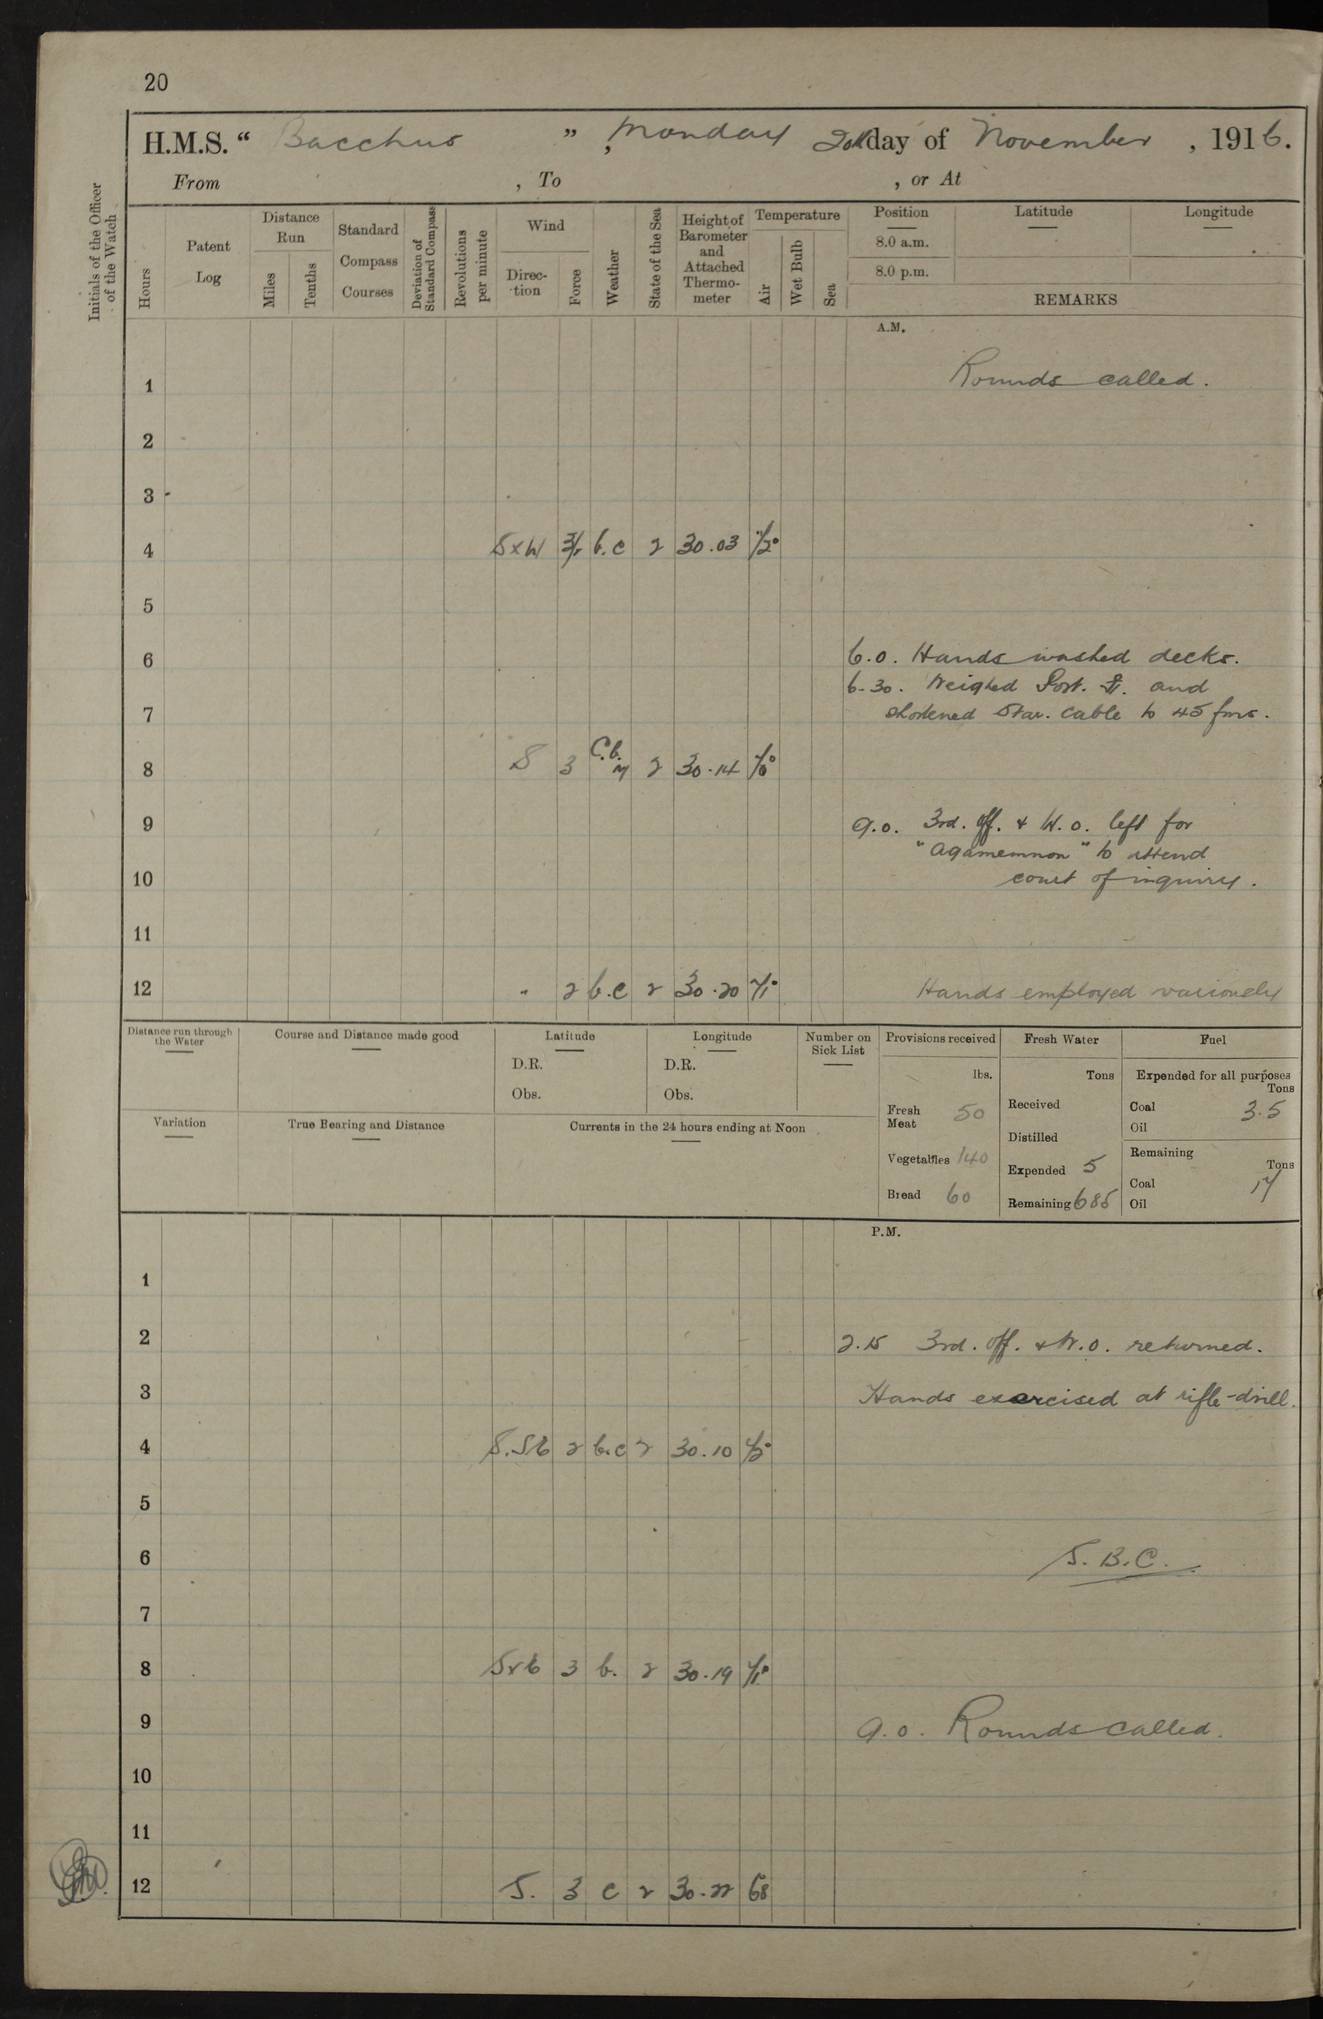 20
H.M.S. “ Bacchus ” , Monday 20th day of November , 1916.
From , To , or At
Initials of the Officer of the Watch
Hours
Patent Log
Distance Run
Miles
Tenths
Standard Compass Courses
Deviation of Standard Compass
Revolutions per minute
Wind
Direc-tion
Force
Weather
State of the Sea
Height of Barometer and Attached Thermo-meter
Temperature
Air
Wet Bulb
Sea
Position
8.0 a.m.
8.0 p.m.
Latitude
Longitude
REMARKS
A.M.
1 Rounds called.
2
3
4 SxW b.c 2 30.03
5
6 6.0. Hands washed decks.
6-30. Weighed Port. and
7 shortened Star. cable to 45 fms.
8 S 3 C.b. m 2 30.14
9 9.0. 3rd. off. & W.O. left for
"Agamemnon" to attend
10 court of inquiry.
11
12 " 2 b.c 2 30.20 Hands employed variously
Distance run through the Water
Course and Distance made good
Latitude
D.R.
Obs.
Longitude
D.R.
Obs.
Number on Sick List
Provisions received
lbs.
Fresh Meat 50
Vegetables 140
Bread 60
Fresh Water
Tons
Received
Distilled
Expended 5
Remaining 685
Fuel
Expended for all purposes
Tons
Coal 3.5
Oil
Remaining
Tons
Coal 17
Oil
Variation
True Bearing and Distance
Currents in the 24 hours ending at Noon
P.M.
1
2 2.15 3rd. off. & W.O. returned.
3 Hands exercised at rifle-drill.
4 S.SE 2 b.c 2 30.10
5
6 S.B.C.
7
8 SxE 3 b. 2 30.19
9 9.0. Rounds called.
10
11
12 S. 3 c 2 30.22 68